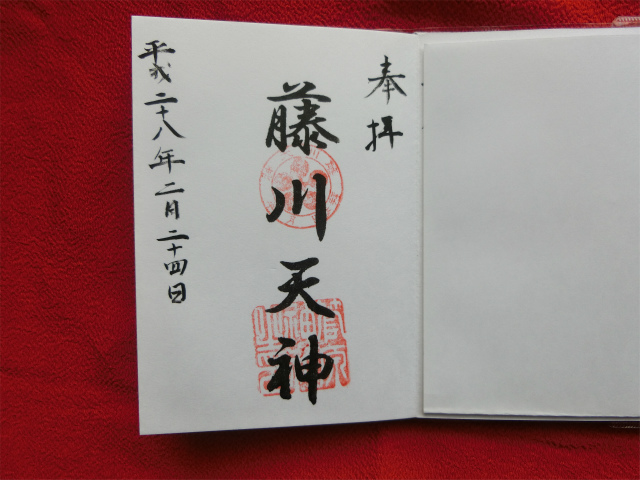 奉拝
藤川天神
平成二十八年二月二十四日